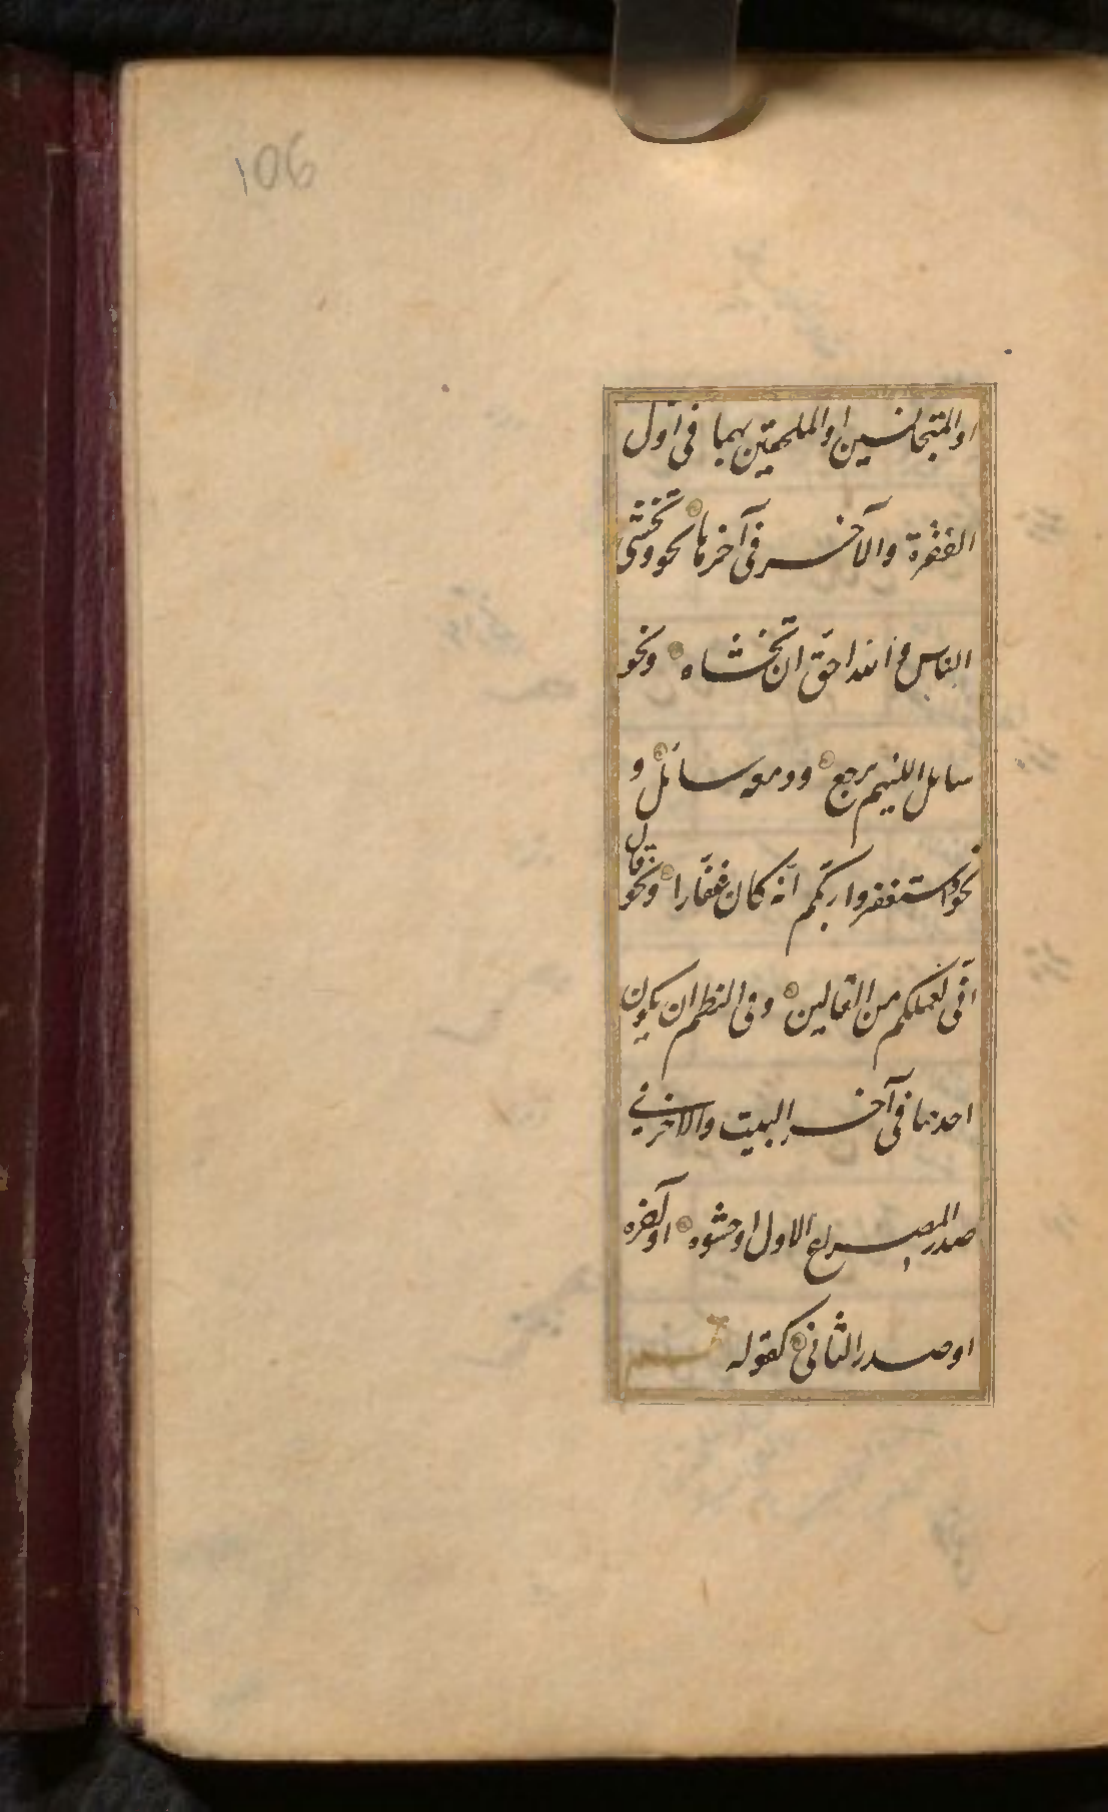 106
او المتجانسين او الملحقين بهما في اول
الفقرة والآخر في آخرها نحو وتخشى
الناس والله احق ان تخشاه ونحو
سائل اللئيم يرجع ودمعه سائل و
نحو استغفروا ربكم انه كان غفارا ونحو قال
اني لعملكم من القالين وفي النظم ان يكون
احدهما في آخر البيت والاخر في
صدر المصراع الاول او حشوه او آخره
او صدر الثاني كقوله